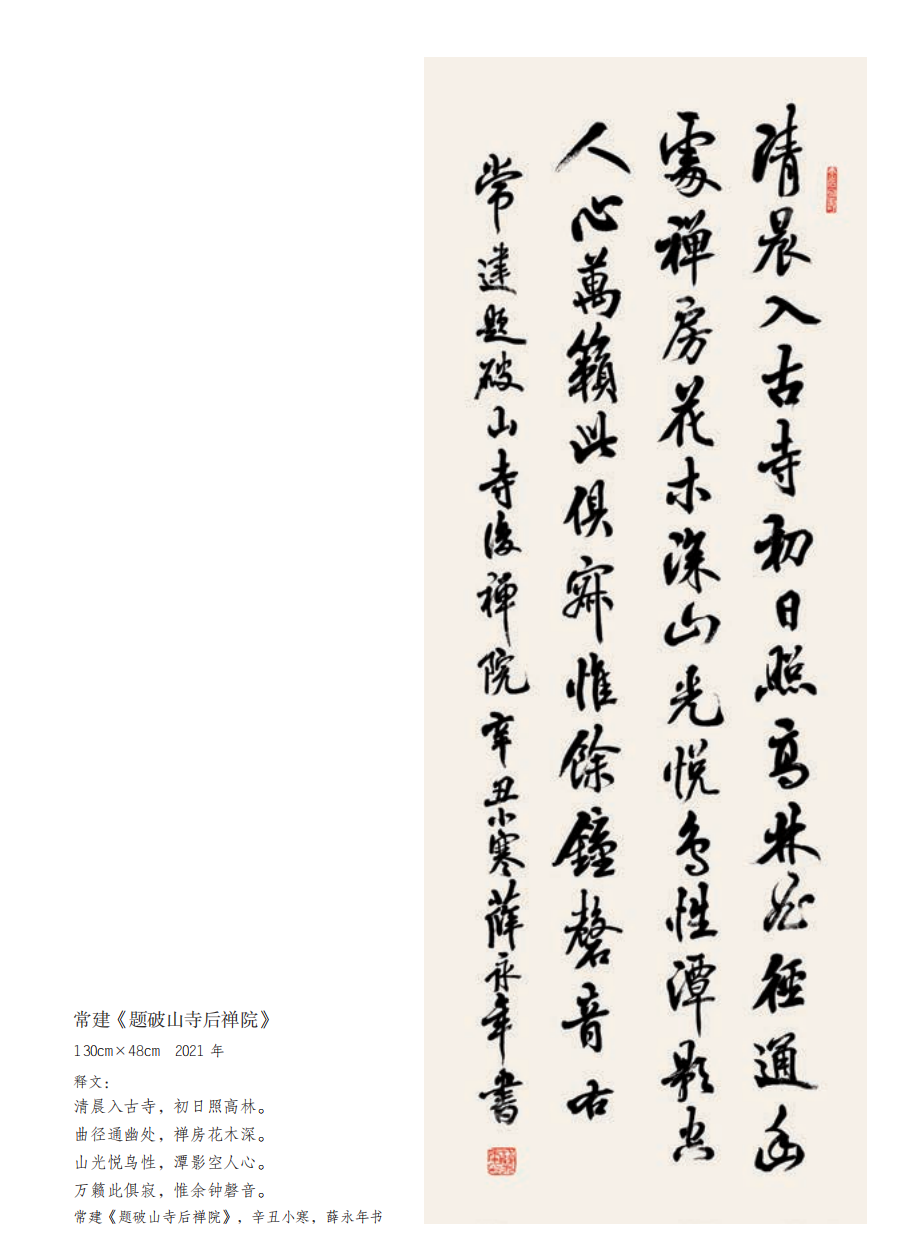 清晨入古寺初日照高林曲徑通幽
處禪房花木深山光悦鳥性潭影空
人心萬籟此俱寂惟餘鐘磬音右
常建題破山寺後禪院辛丑小寒薛永年書
常建《题破山寺后禅院》
130cm×48cm 2021 年
释文：
清晨入古寺，初日照高林。
曲径通幽处，禅房花木深。
山光悦鸟性，潭影空人心。
万籁此俱寂，惟余钟磬音。
常建《题破山寺后禅院》，辛丑小寒，薛永年书